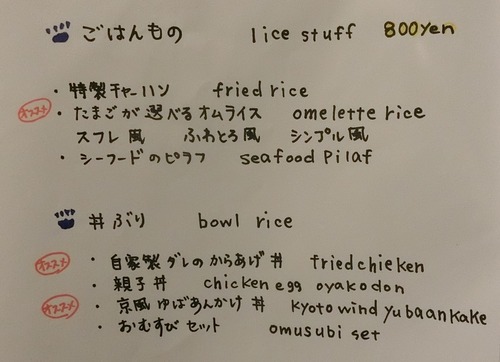 ごはんもの lice stuff 800yen
・特製チャーハン fried rice
オススメ ・たまごが選べるオムライス omelette rice
スフレ風 ふわとろ風 シンプル風
・シーフードのピラフ seafood Pilaf
丼ぶり bowl rice
オススメ ・自家製ダレのからあげ丼 friedchieken
・親子丼 chicken egg oyakodon
オススメ ・京風ゆばあんかけ丼 kyoto wind yubaankake
・おむすびセット omusubi set